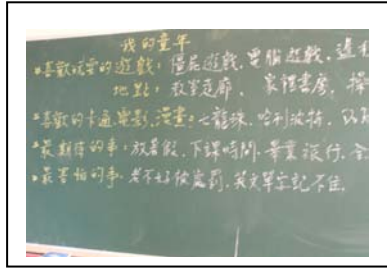 我的童年
喜歡玩耍的遊戲：殭屍遊戲、電腦遊戲、
地點：教室走廊、家裡書房、操
喜歡的卡通電影、漫畫：七龍珠、哈利波特、
最期待的事：放暑假、下課時間、畢業旅行、
最害怕的事：考不好被處罰、英文單字記不住。